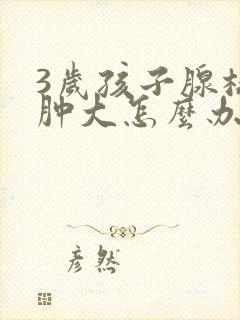 3歲孩子腺
肿大怎麼办
彦然